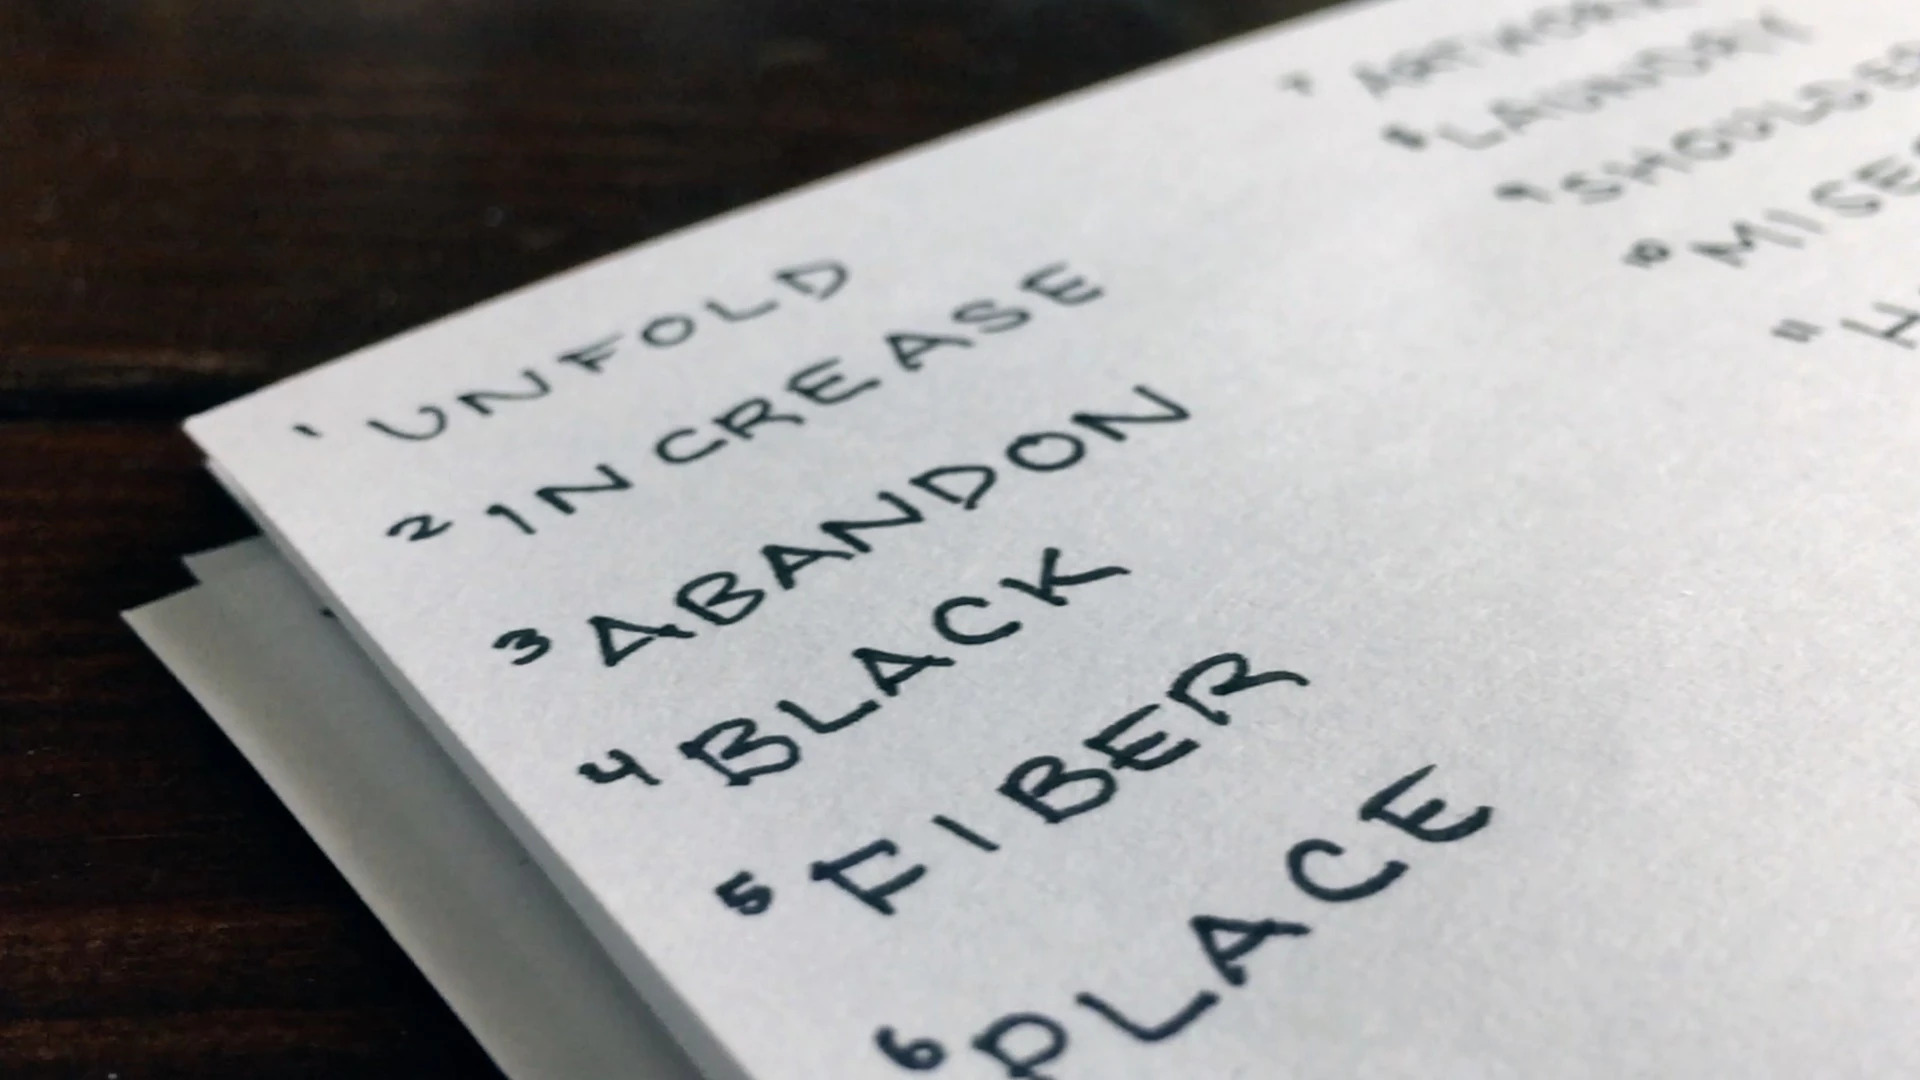 1 UNFOLD
2 INCREASE
3 ABANDON
4 BLACK
5 FIBER
6 PLACE
7 ARTWORK
8 LAUNDRY
9 SHOULDER
10 MISE
11 H